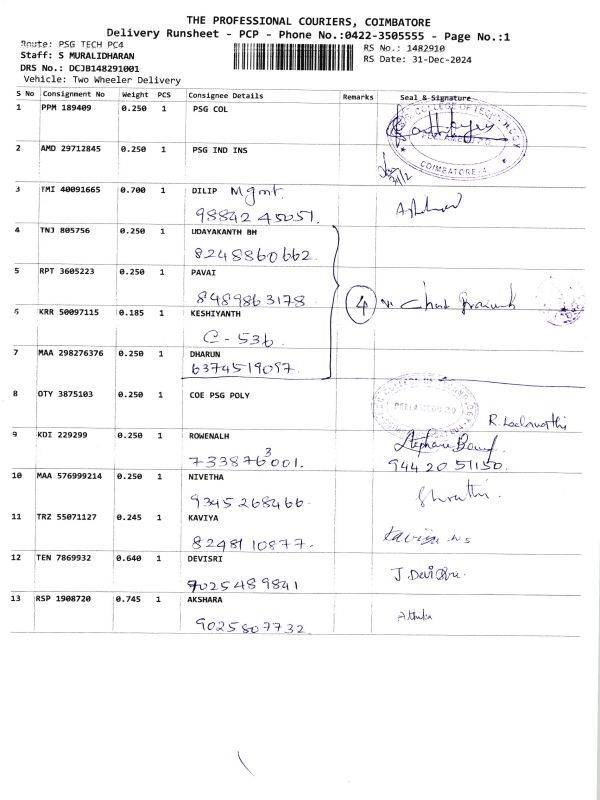 THE PROFESSIONAL COURIERS, COIMBATORE
Delivery Runsheet - PCP - Phone No.:0422-3505555 - Page No.:1
Route: PSG TECH PC4
RS No.: 1482910
Staff: S MURALIDHARAN
RS Date: 31-Dec-2024
DRS No.: DCJB148291001
Vehicle: Two Wheeler Delivery
S No Consignment No Weight PCS Consignee Details Remarks Seal & Signature
1 PPM 189409 0.250 1 PSG COL
2 AMD 29712845 0.250 1 PSG IND INS
COIMBATORE-4
3 TMI 40091665 0.700 1 DILIP Mgmt.
98842 45051.
4 TNJ 805756 0.250 1 UDAYAKANTH BH
8248860662.
5 RPT 3605223 0.250 1 PAVAI
8489863178
4
6 KRR 50097115 0.185 1 KESHIYANTH
C - 536
7 MAA 298276376 0.250 1 DHARUN
6374519097.
8 OTY 3875103 0.250 1 COE PSG POLY
9 KDI 229299 0.250 1 ROWENALH
3
733876001.
944 20 51150.
10 MAA 576999214 0.250 1 NIVETHA
9345268466.
Shruthi.
11 TRZ 55071127 0.245 1 KAVIYA
82481 10877.
12 TEN 7869932 0.640 1 DEVISRI
7025489841
J. Devi
13 RSP 1908720 0.745 1 AKSHARA
9025807732.